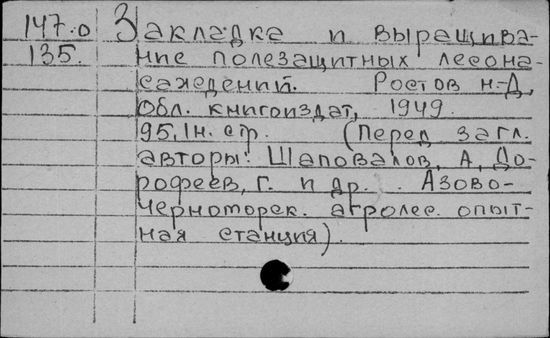 147.0 Закладка и выращива-
135. ние полезащитных лесона-
саждений. Ростов н-Д,
Обл. книгоиздат, 1949.
95,1н. стр. (Перед загл.
авторы: Шаповалов, А, До-
рофеев, г. и др. . Азово-
Черноморск. агролес. опыт-
ная станция).